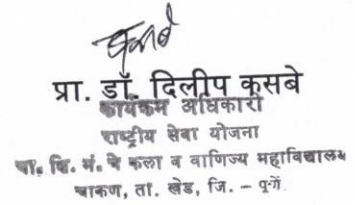 कसबे
प्रा. डॉ. दिलीप कसबे
कार्यक्रम अधिकारी
राष्ट्रीय सेवा योजना
वा. शि. मं. चे कला व वाणिज्य महाविद्यालय
चाकण, ता. खेड, जि. - पुणे.